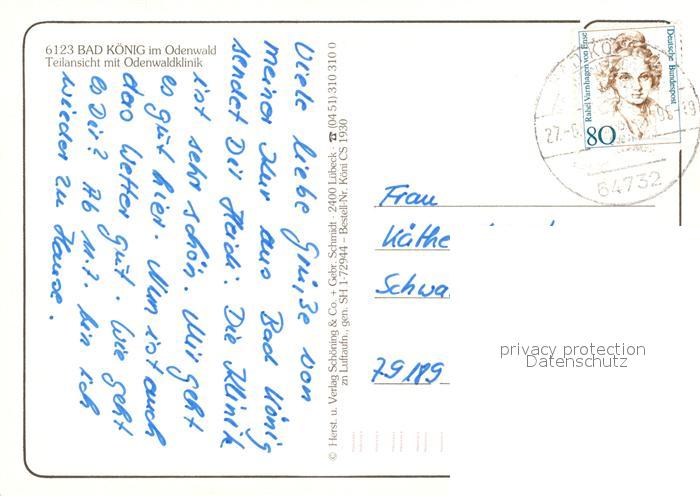 6123 BAD KÖNIG im Odenwald
Teilansicht mit Odenwaldklinik
Viele liebe Grüße von
meiner Kur aus Bad König
sendet Dir Heidi. Die Klinik
ist sehr schön. Mir geht
es gut hier. Nun ist auch
das Wetter gut. Wie geht
es Dir? Ab 11.7. bin ich
wieder zu Hause.
© Herst. u. Verlag Schöning & Co. + Gebr. Schmidt · 2400 Lübeck · ☎ (04 51) 310 310 0
zn Luftaufn., gen. SH 1-72944 – Bestell-Nr. Köni CS 1930
Rahel Varnhagen von Ense
Deutsche Bundespost
80
64732
Frau
Käthe
79189
privacy protection
Datenschutz